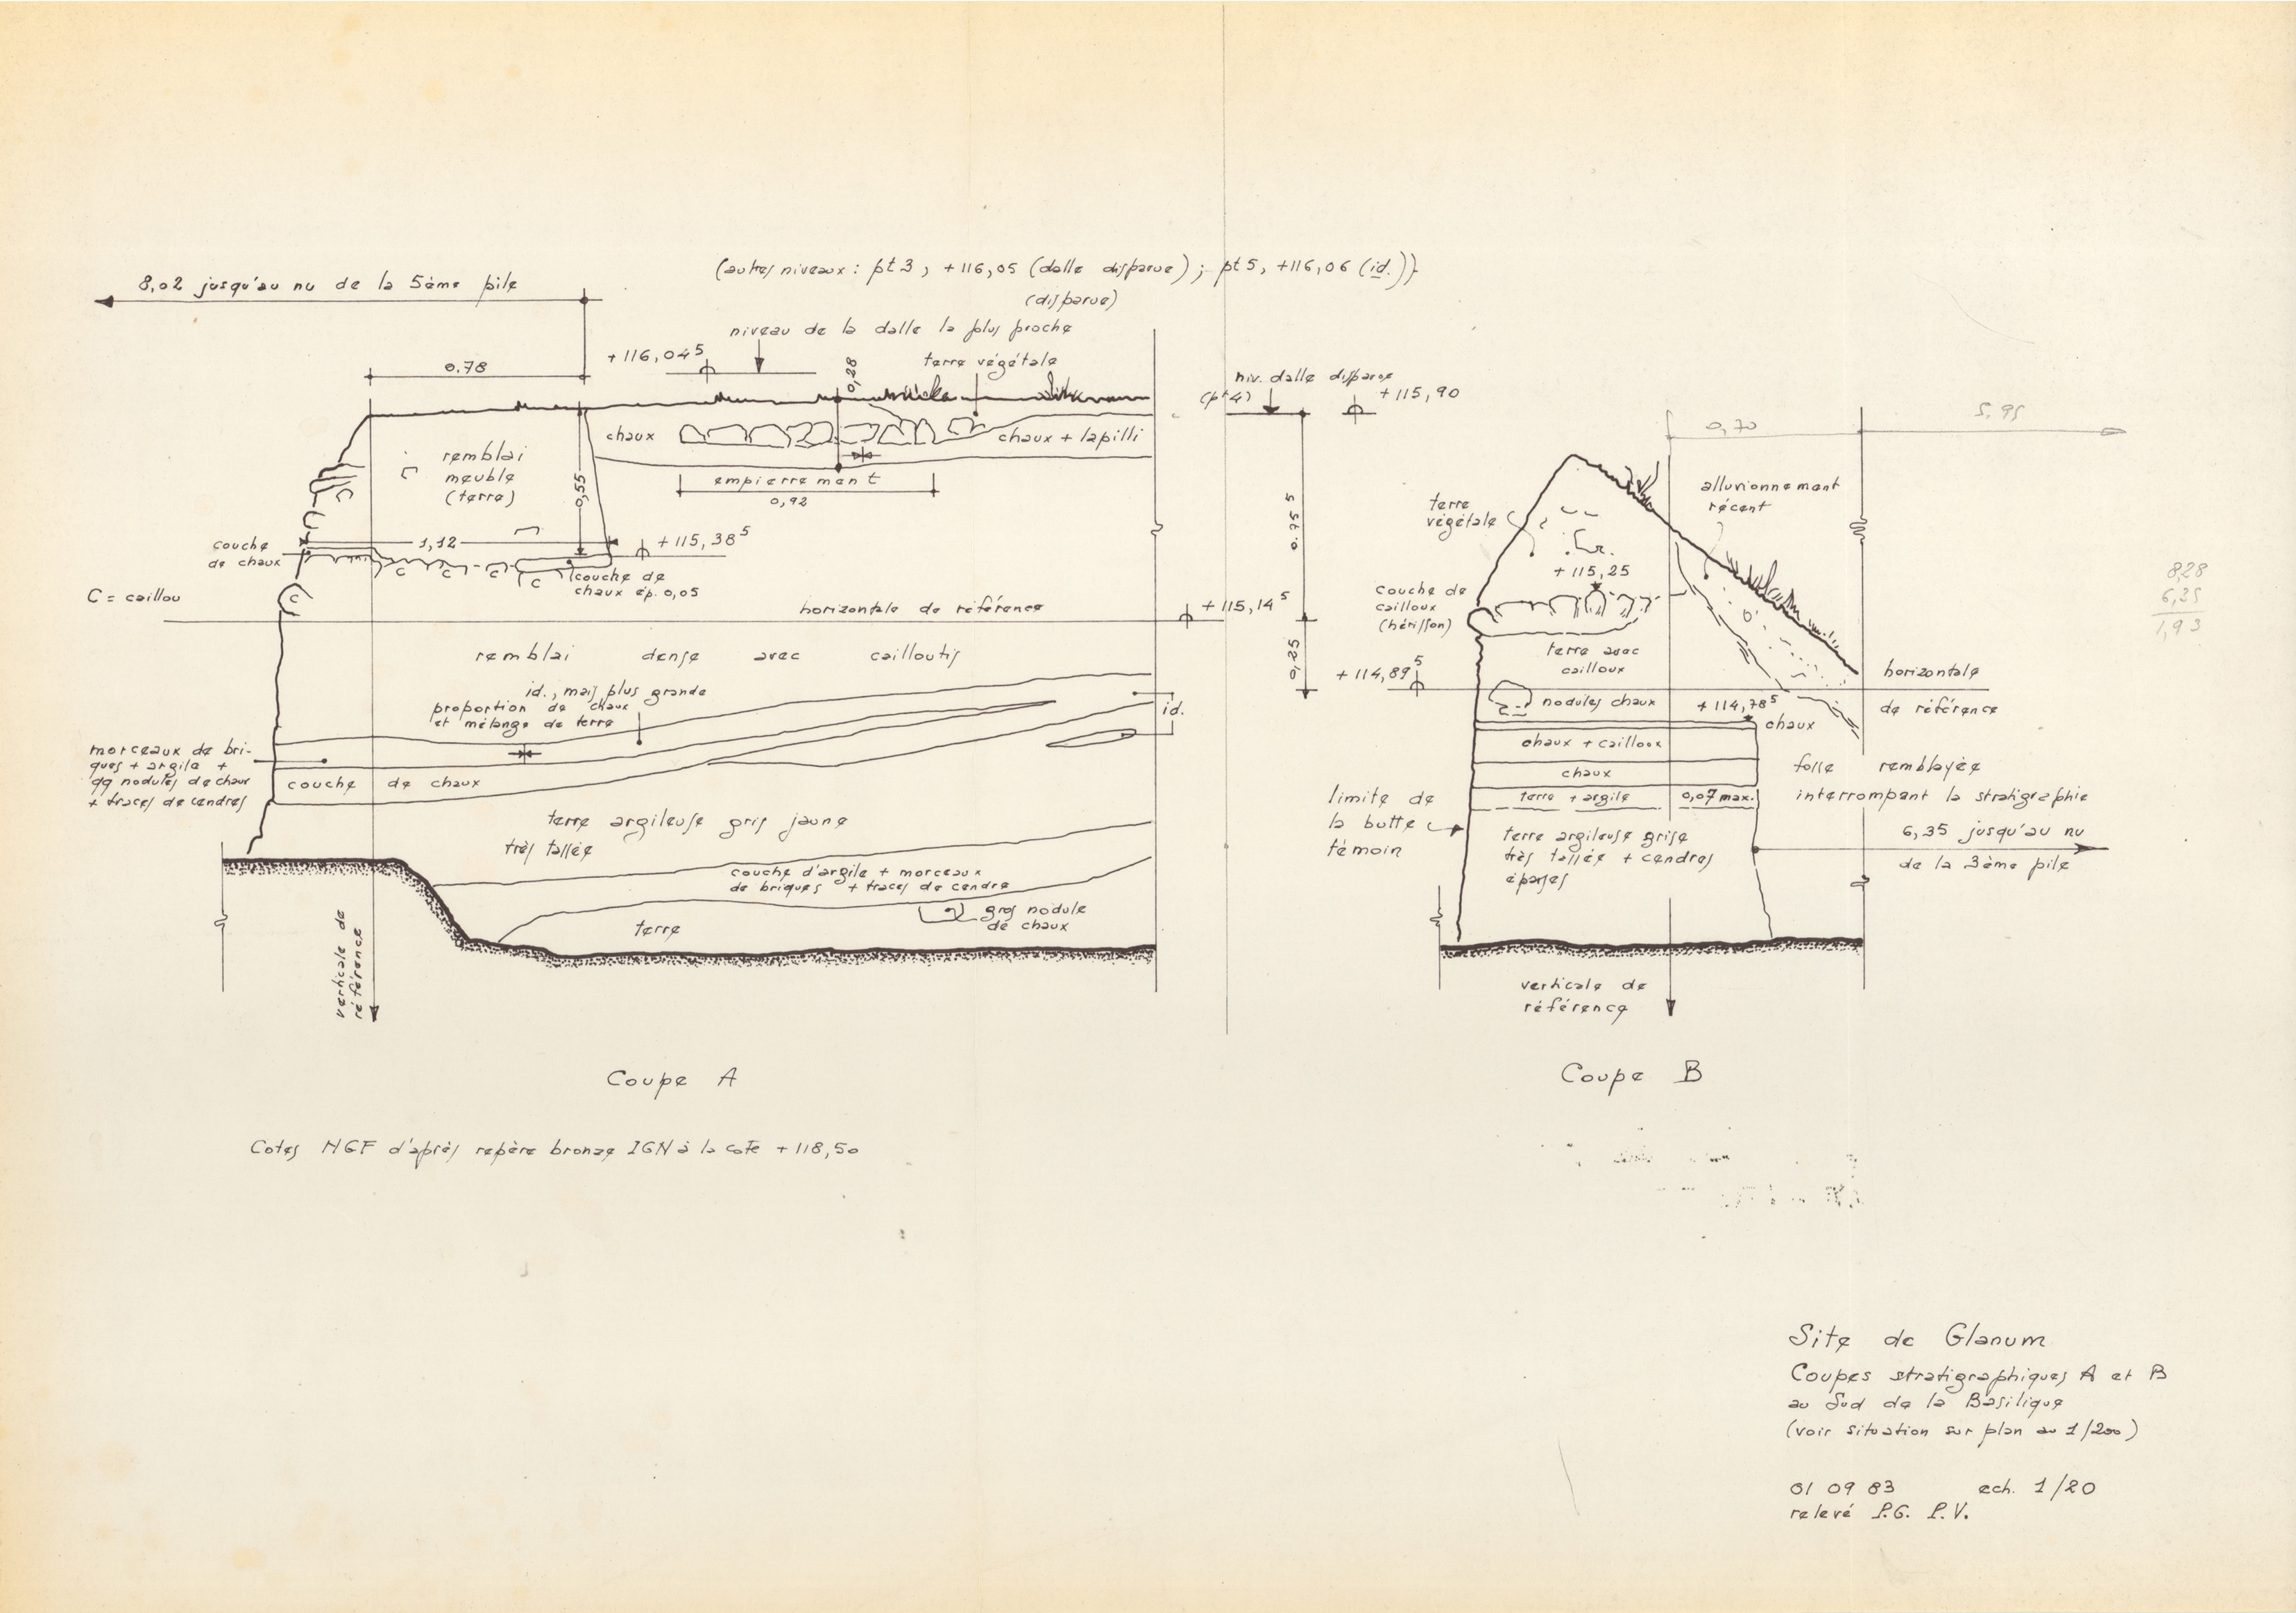 (autres niveaux : pt 3, +116,05 (dalle disparue) ; pt 5, +116,06 (id.))
8,02 jusqu'au nu de la 5ème pile
(disparue)
niveau de la dalle la plus proche
+116,04⁵
0,28
terre végétale
0,78
chaux
chaux + lapilli
remblai
meuble
(terre)
0,55
empierrement
0,92
couche
de chaux
1,12
+115,38⁵
C
C
C
C
C
C
couche de
chaux ép. 0,05
C = caillou
horizontale de référence
+115,14⁵
remblai dense avec cailloutis
id., mais plus grande
proportion de chaux
et mélange de terre
id.
morceaux de bri-
ques + argile +
qq nodules de chaux
+ traces de cendres
couche de chaux
terre argileuse gris jaune
très tassée
couche d'argile + morceaux
de briques + traces de cendre
gros nodule
de chaux
terre
verticale de
référence
Coupe A
Cotes NGF d'après repère bronze IGN à la cote +118,50
niv. dalle disparue
(pt 4)
+115,90
0,70
5,95
0,75⁵
0,25
alluvionnement
récent
terre
végétale
+115,25
couche de
cailloux
(hérisson)
terre avec
cailloux
+114,89⁵
horizontale
de référence
nodules chaux
+114,78⁵
chaux
chaux + cailloux
chaux
terre + argile
0,07 max.
fosse remblayée
interrompant la stratigraphie
limite de
la butte
témoin
terre argileuse grise
très tassée + cendres
éparses
6,35 jusqu'au nu
de la 3ème pile
verticale de
référence
Coupe B
8,28
6,35
1,93
Site de Glanum
Coupes stratigraphiques A et B
au Sud de la Basilique
(voir situation sur plan au 1/200)
01 09 83 ech. 1/20
relevé P.G. P.V.